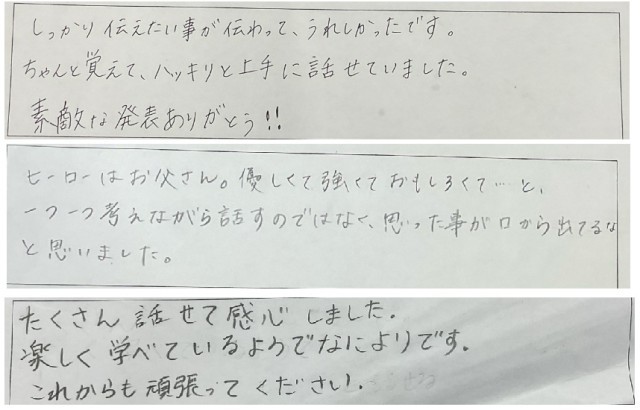 しっかり伝えたい事が伝わって、うれしかったです。
ちゃんと覚えて、ハッキリと上手に話せていました。
素敵な発表ありがとう!!
ヒーローはお父さん。優しくて強くておもしろくて…と、
一つ一つ考えながら話すのではなく、思った事が口から出てるな
と思いました。
たくさん話せて感心しました。
楽しく学べているようでなによりです。
これからも頑張ってください。